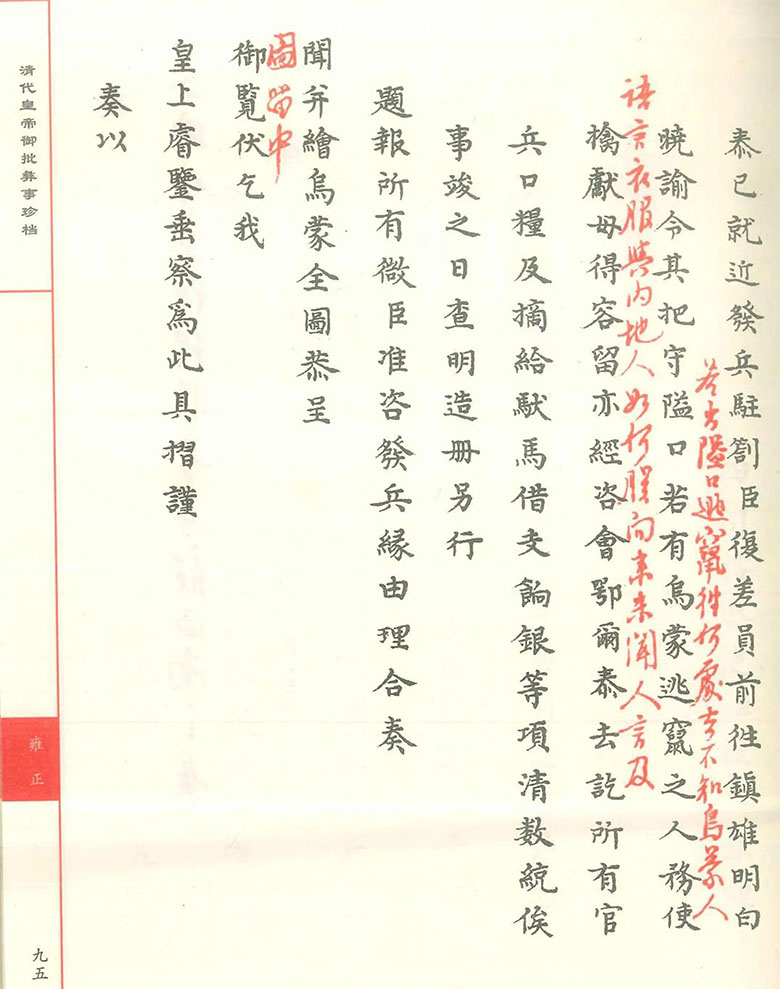 泰已就近發兵駐劄臣復差員前徃鎮雄明白
若出隘口逃竄徃何處去不知烏蒙人
曉諭令其把守隘口若有烏蒙逃竄之人務使
語言衣服與内地人如何朕向来未聞人言及
擒獻毋得容留亦經咨會鄂爾泰去訖所有官
兵口糧及摘給馱馬借支餉銀等項清数統俟
事竣之日查明造册另行
題報所有微臣准咨發兵緣由理合奏
聞并繪烏蒙全圖恭呈
圖留中
御覽伏乞我
皇上睿鑒垂察爲此具摺謹
奏以
清代皇帝御批彝事珍档
雍正
九五